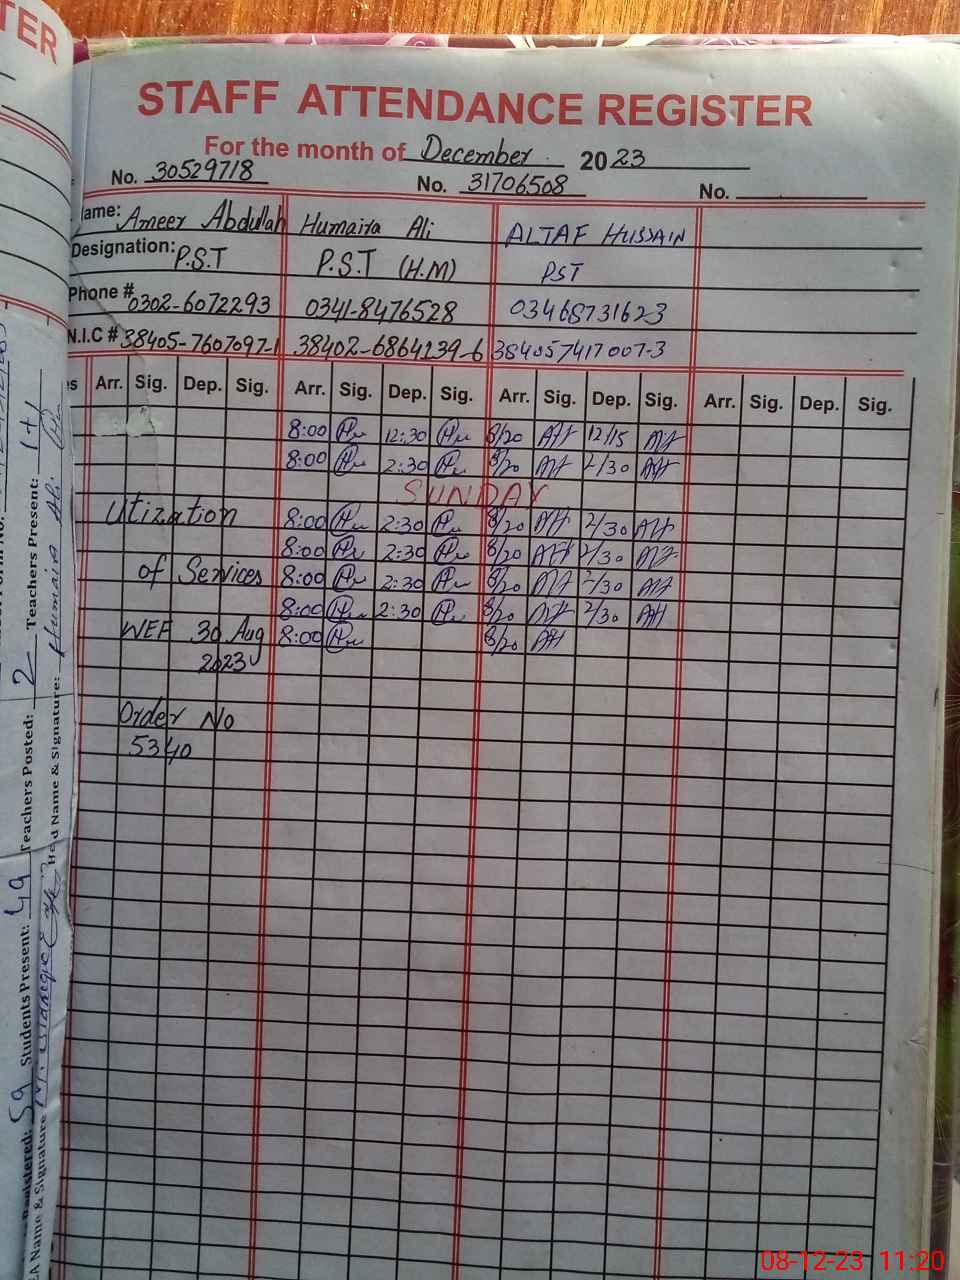 TER
STAFF ATTENDANCE REGISTER
For the month of December 2023
No. 30529718 No. 31706508 No.
ame: Ameer Abdullah Humaira Ali ALTAF HUSSAIN
Designation: P.S.T P.S.T (H.M) PST
Phone # 0302-6072293 0341-8476528 03468731623
N.I.C # 38405-7607097-1 38402-6864139-6 384057417007-3
s Arr. Sig. Dep. Sig. Arr. Sig. Dep. Sig. Arr. Sig. Dep. Sig. Arr. Sig. Dep. Sig.
8:00 12:30 8/20 12/15
8:00 2:30 8/20 2/30
SUNDAY
Utization 8:00 2:30 8/20 2/30
8:00 2:30 8/20 2/30
of Services 8:00 2:30 8/20 2/30
8:00 2:30 8/20 2/30
WEF 30 Aug 8:00 8/20
2023
Order No
5340
Registered: 59 Students Present: 49 Teachers Posted: 2 Teachers Present: 1+1
EA Name & Signature Head Name & Signature: Humaira Ali
08-12-23 11:20